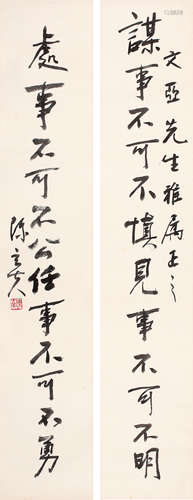 文亞先生雅屬正之
謀事不可不慎見事不可不明
處事不可不公任事不可不勇
陈立夫